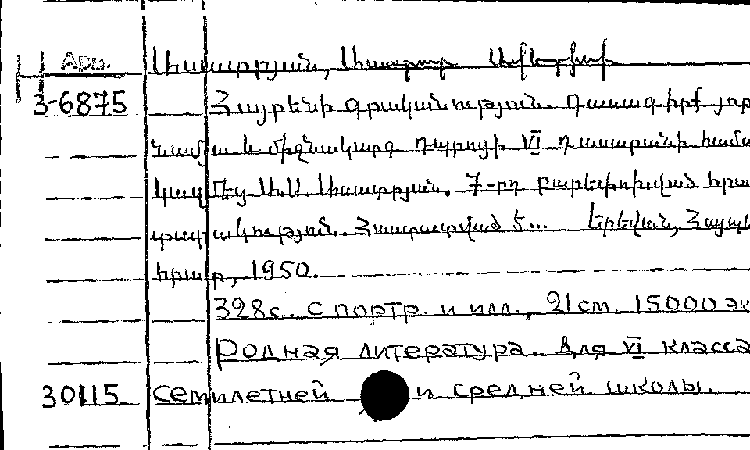 Арм. Ասատրյան, Ասատուր
3-6875 Հայրենի գրականություն. Դասագիրք յոթ
նամյա և միջնակարգ դպրոցի VI դասարանի համա
Կազմեց Աս. Ասատրյան. 7-րդ բարեփոխված հրա
տարակություն. Հաստատված է... Երևան, Հայպե
հրատ, 1950.
328с. с портр. и илл., 21см. 15000 эк
Родная литература. Для VI класса
30115 семилетней и средней школы.